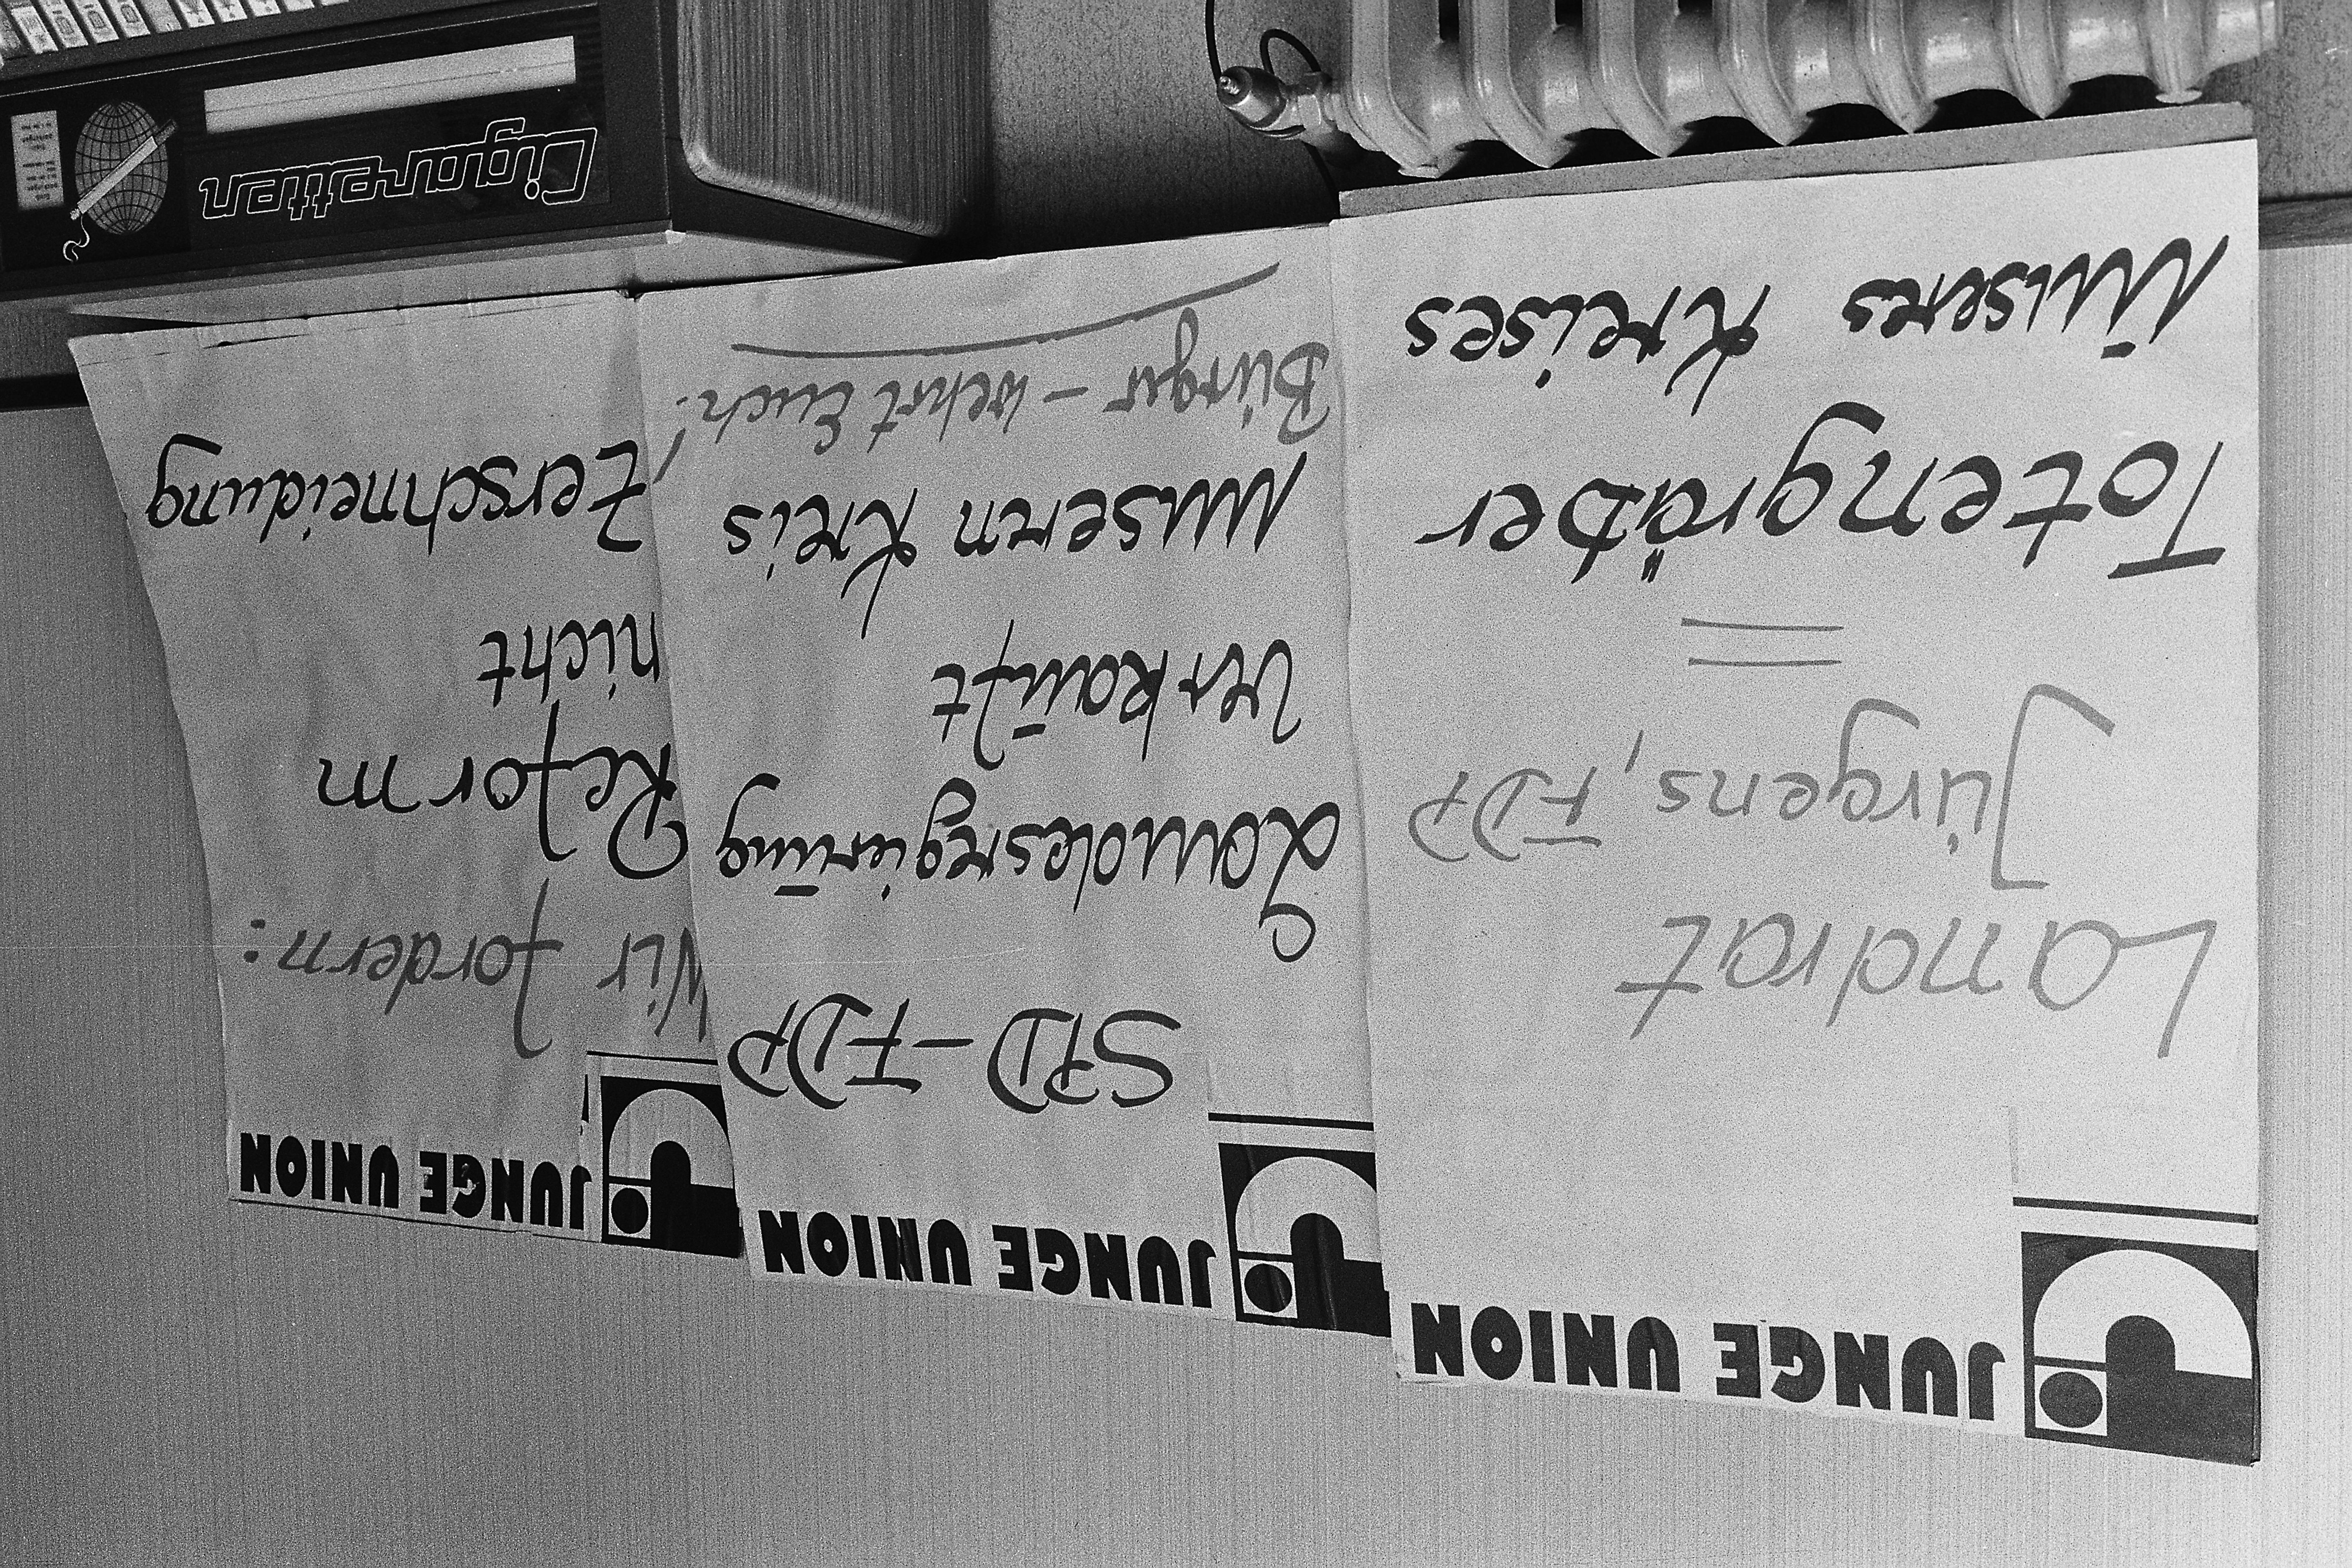 JUNGE UNION
Landrat
Jürgens, FDP
=
Totengräber
Unseres Kreises
JUNGE UNION
SPD-FDP
Landesregierung
Verkauft
unseren Kreis
Bürger - wehrt Euch!
JUNGE UNION
Wir fordern:
Reform
nicht
Zerschneidung
Cigaretten